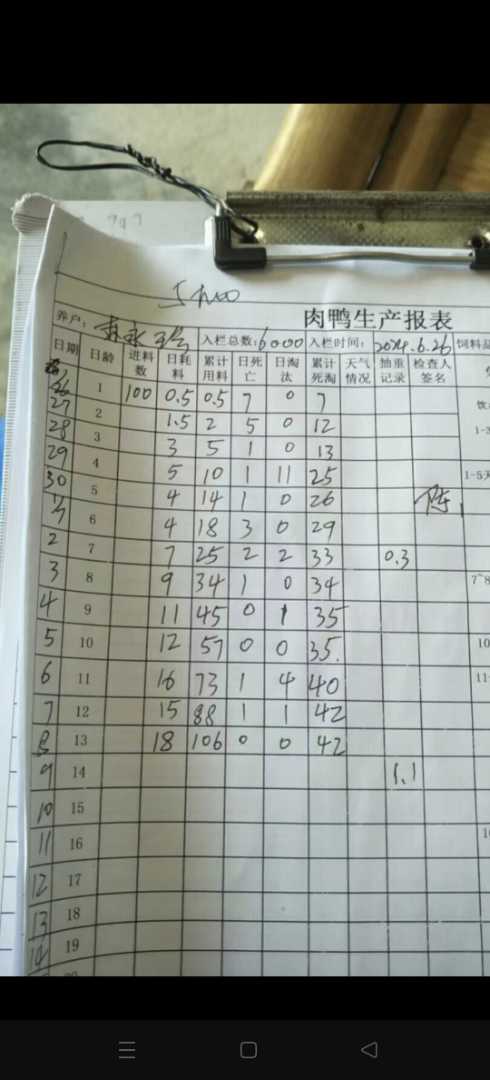 肉鸭生产报表
养户: 入栏总数:6000 入栏时间: 2024.6.26 饲料品
日期 日龄 进料数 日耗料 累计用料 日死亡 日淘汰 累计死淘 天气情况 抽重记录 检查人签名
26 1 100 0.5 0.5 7 0 7
27 2 1.5 2 5 0 12
28 3 3 5 1 0 13 1-3
29 4 5 10 1 11 25
30 5 4 14 1 0 26 陈 1-5天
6 4 18 3 0 29
2 7 7 25 2 2 33 0.3
3 8 9 34 1 0 34 7~8
4 9 11 45 0 1 35
5 10 12 57 0 0 35. 10
6 11 16 73 1 4 40 11
7 12 15 88 1 1 42
8 13 18 106 0 0 42
9 14 1.1
10 15
11 16
12 17
13 18
14 19